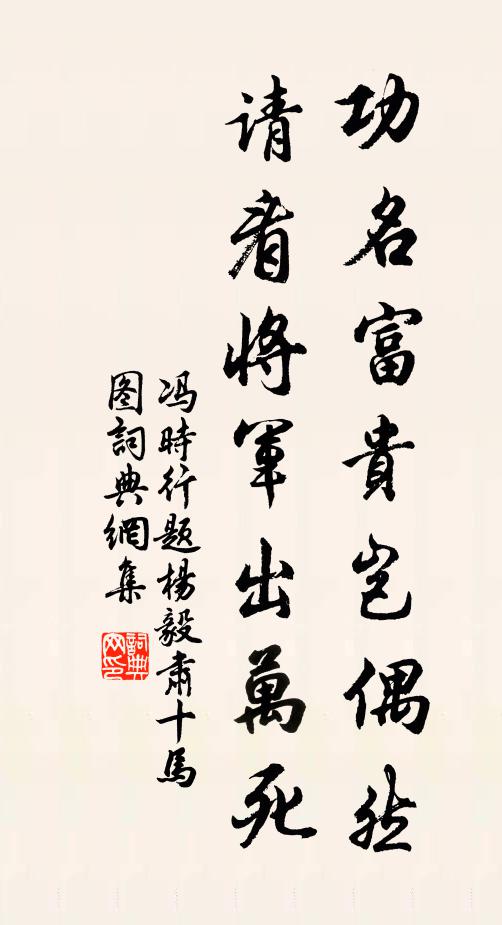 功名富貴豈偶然
请看將軍出萬死
冯時行题楊毅肅十馬
图詞典網集
詞典网印